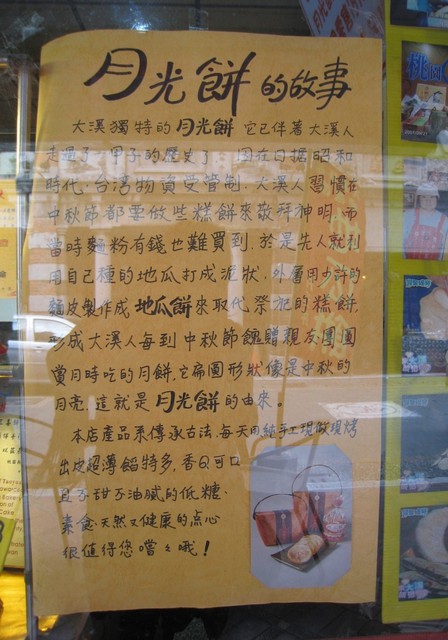 月光餅的故事
大溪獨特的月光餅 它已伴著大溪人
走過了一甲子的歷史了，因在日据昭和
時代，台湾物資受管制，大溪人習慣在
中秋節都要做些糕餅來敬拜神明，而
當時麵粉有錢也難買到，於是先人就利
用自己種的地瓜打成泥狀，外層用少許的
麵皮製作成地瓜餅來取代祭祀的糕餅，
形成大溪人每到中秋節餽贈親友團圓
賞月時吃的月餅，它扁圓形狀像是中秋的
月亮，這就是月光餅的由來。
本店產品系傳承古法，每天用純手工現做現烤
出皮超薄餡特多，香Q可口
且不甜不油膩的低糖，
素食、天然又健康的点心
很值得您嚐々哦！
桃園